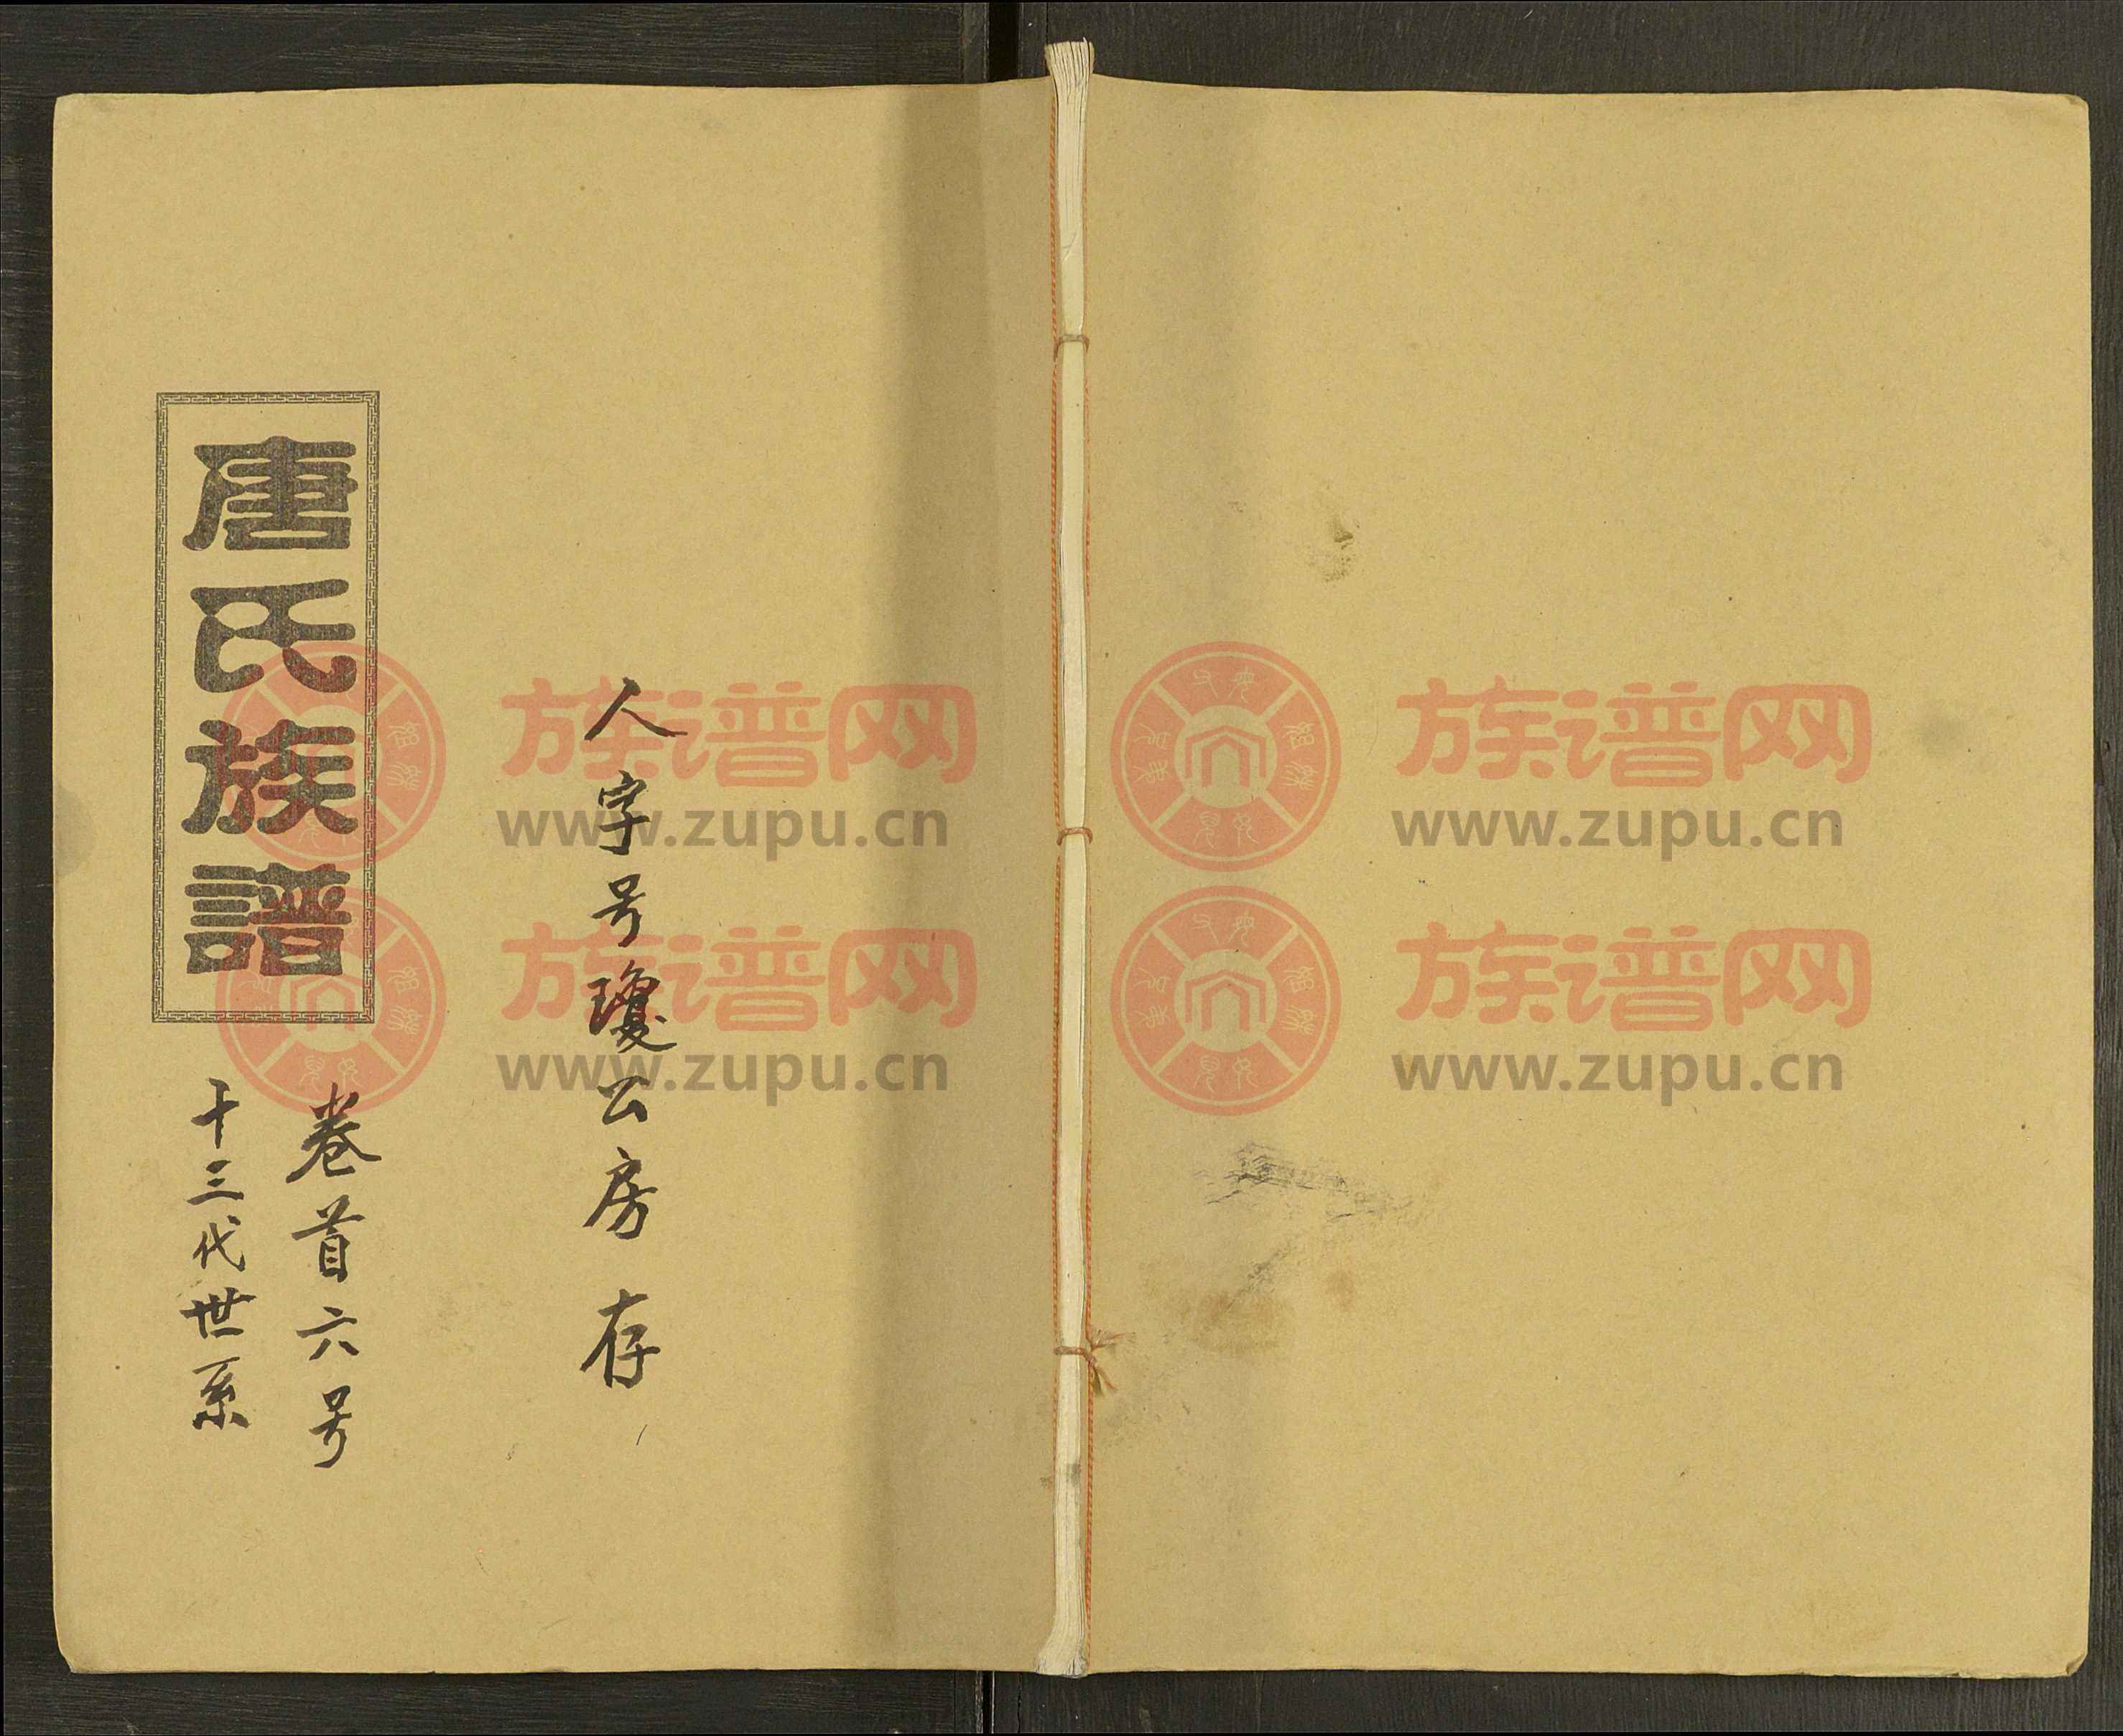 人字号瓊公房存
唐氏族譜
卷首六号
十三代世系
族谱网
www.zupu.cn
族谱网
www.zupu.cn
族谱网
www.zupu.cn
族谱网
www.zupu.cn